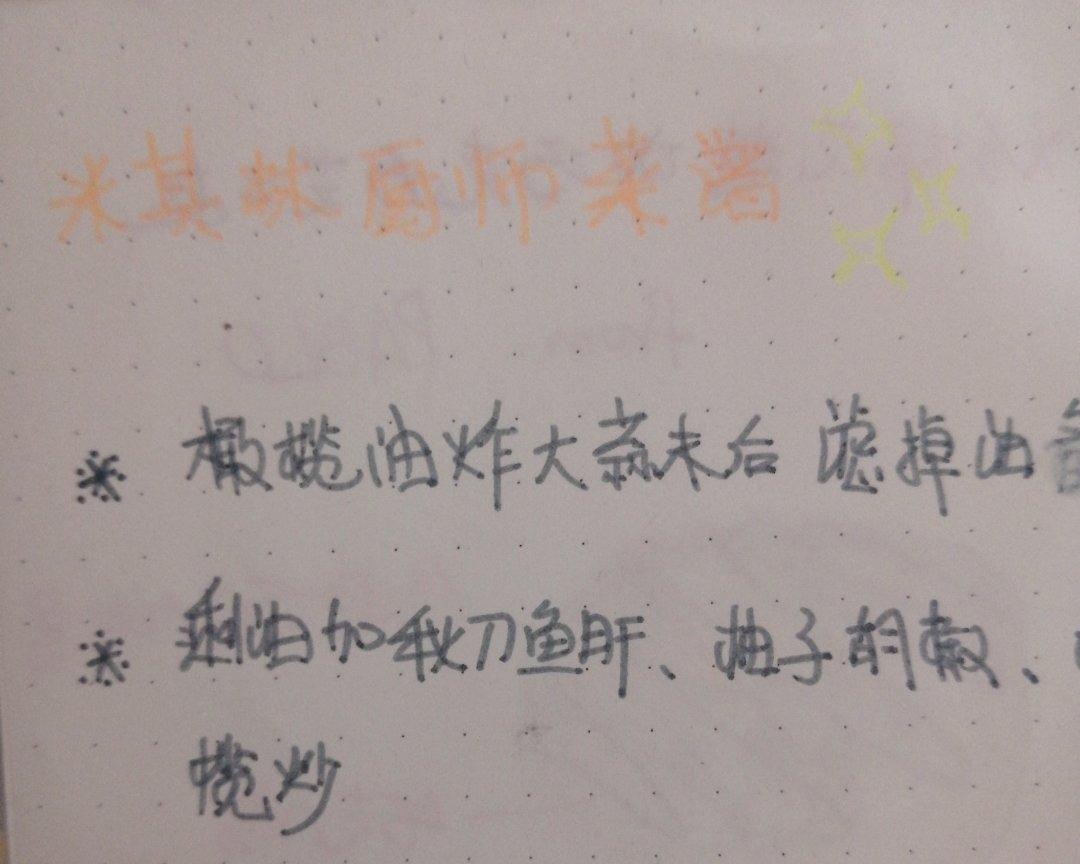 米其林厨师菜谱
橄榄油炸大蒜末后 滤掉油
剩油加秋刀鱼肝、柚子胡椒、
榄炒